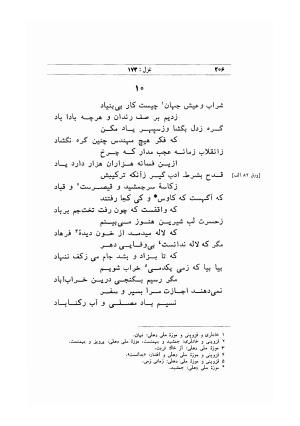 ۲۰۶
غزل : ۱۷۳
۱۰
شراب وعیش جهان۱ چیست کار بی‌بنیاد
زدیم بر صف رندان و هرچه بادا باد
گره زدل بگشا وزسپهر یاد مکن
که فکر هیچ مهندس چنین گره نگشاد
زانقلاب زمانه عجب مدار که چرخ
ازین فسانه هزاران هزار دارد یاد
قدح بشرط ادب گیر زآنکه ترکیبش
زکاسهٔ سرجمشید و قیصرست۲ و قباد
که آگهست که کاوس* و کی کجا رفتند
که واقفست که چون رفت تخت‌جم برباد
زحسرت لب شیرین هنوز می‌بینم
که لاله میدمد از خون دیدهٔ۳ فرهاد
مگر که لاله ندانست۴ بی‌وفایی دهر
که تا بزاد و بشد جام می زکف ننهاد
بیا بیا که زمی یکدمی۵ خراب شویم
مگر رسیم بگنجی درین خراب‌آباد
نمی‌دهند اجازت مرا بسیر و سفر
نسیم باد مصلی و آب رکناباد
۱ خانلری و قزوینی و موزهٔ ملی دهلی: نهان.
۲ قزوینی و خانلری: جمشید و بهمنست، موزهٔ ملی دهلی: پرویز و بهمنست.
۳ موزهٔ ملی دهلی: از خاک تربت.
۴ قزوینی و موزهٔ ملی دهلی
۵ قزوینی و موزهٔ ملی دهلی: زمانی زمی.
* موزهٔ ملی دهلی: جمشید.